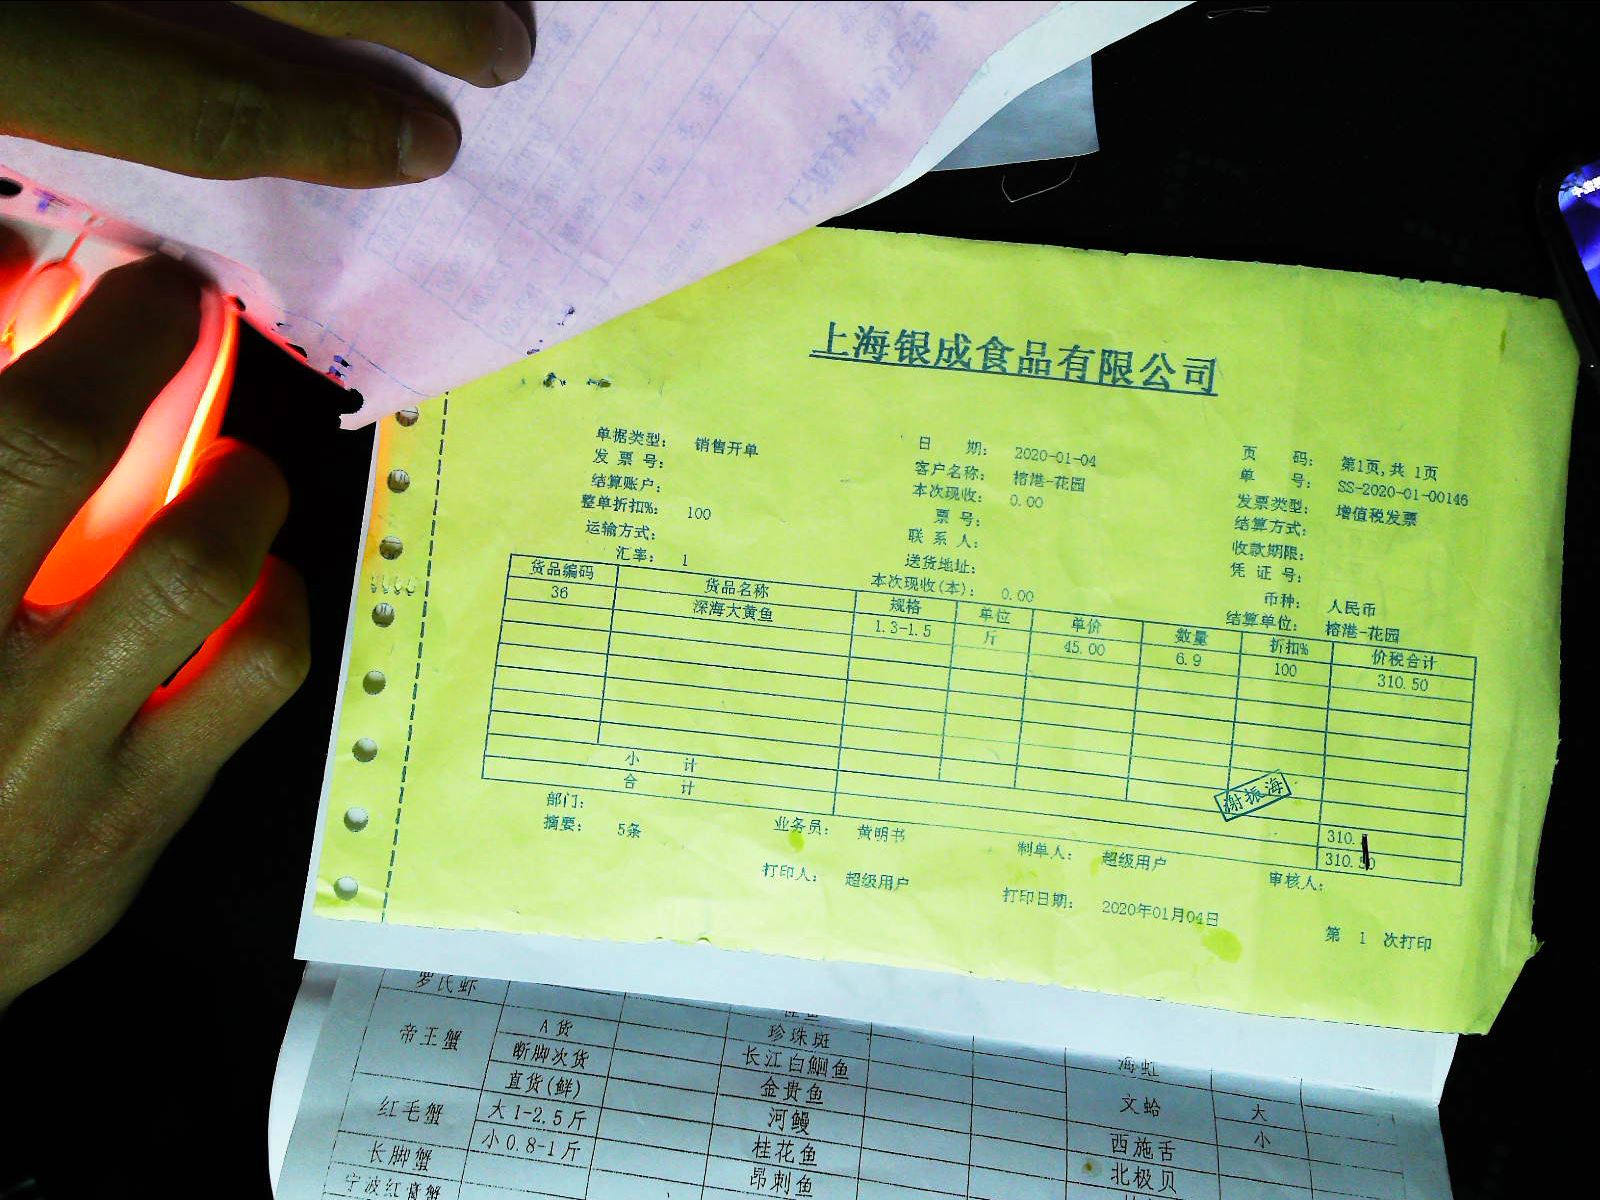 上海银成食品有限公司
单据类型: 销售开单 日 期: 2020-01-04 页 码: 第1页,共 1页
发 票 号: 客户名称: 榕港-花园 单 号: SS-2020-01-00146
结算账户: 本次现收: 0.00 发票类型: 增值税发票
整单折扣%: 100 票 号: 结算方式:
运输方式: 联 系 人: 收款期限:
汇率: 1 送货地址: 凭 证 号:
本次现收(本): 0.00 币种: 人民币
结算单位: 榕港-花园
货品编码 货品名称 规格 单位 单价 数量 折扣% 价税合计
36 深海大黄鱼 1.3-1.5 斤 45.00 6.9 100 310.50
小 计
合 计 310.50
谢振海
部门: 业务员: 黄明书 制单人: 超级用户 审核人:
摘要: 5条
打印人: 超级用户 打印日期: 2020年01月04日
第 1 次打印
罗氏虾
帝王蟹 A货 珍珠斑 海虹
断脚次货 长江白鮰鱼
直货(鲜) 金贵鱼 文蛤 大
红毛蟹 大1-2.5斤 河鳗 小
小0.8-1斤 桂花鱼 西施舌
长脚蟹 昂刺鱼 北极贝
宁波红膏蟹